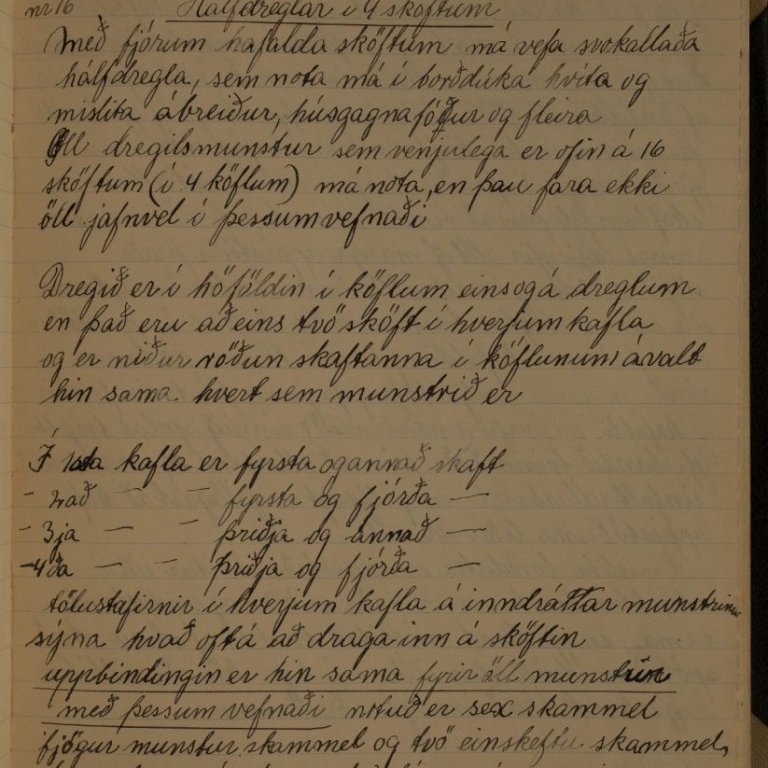 nr 16 Hálfdreglar í 4 sköftum
Með fjórum hafalda sköftum má vefa svokallaða
hálfdregla, sem nota má í borðdúka hvíta og
mislita ábreiður, húsgagnafóður og fleira
Öll dregilsmunstur sem venjulega er ofin á 16
sköftum (í 4 köflum) má nota, en þau fara ekki
öll jafnvel í þessum vefnaði
Dregið er í höföldin í köflum eins og á dreglum
en það eru aðeins tvö sköft í hverjum kafla
og er niður röðun skaftanna í köflunum ávalt
hin sama. hvert sem munstrið er
Í 1sta kafla er fyrsta og annað skaft
- 2að — - fyrsta og fjórða —
- 3ja — - þriðja og annað —
- 4ða — - þriðja og fjórða —
tölustafirnir í hverjum kafla á inndráttar munstrinu
sýna hvað oft á að draga inn á sköftin
uppbindingin er hin sama fyrir öll munstrin
með þessum vefnaði notuð er sex skammel
fjögur munstur skammel og tvö einskeftu skammel,